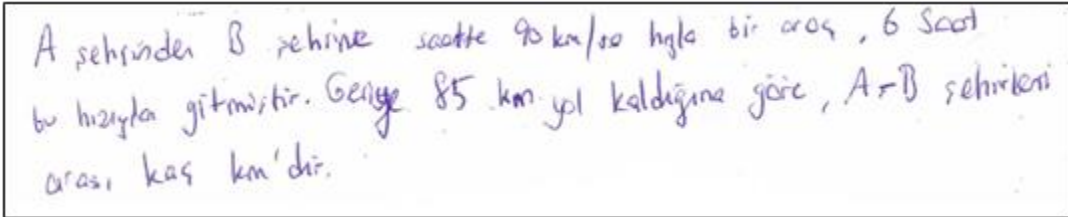 A şehrinden B şehrine saatte 90 km/sa hızla bir araç, 6 saat
bu hızıyla gitmiştir. Geriye 85 km yol kaldığına göre, A-B şehirleri
arası kaç km'dir.